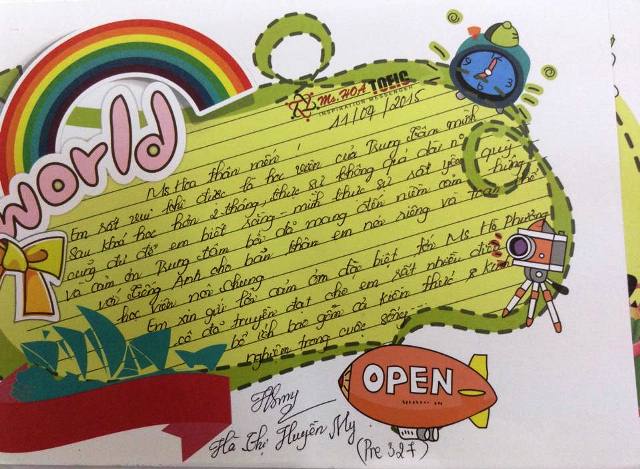 world
Ms. HOA TOEIC
INSPIRATION MESSENGER
11/09/2015
Ms Hoa thân mến!
Em rất vui khi được là học viên của Trung tâm mình
Sau khoá học hơn 2 tháng, thực sự không quá dài nhưng
cũng đủ để em biết rằng - mình thực sự rất yêu quý
và cảm ơn Trung tâm bởi đã mang đến niềm cảm hứng
với Tiếng Anh cho bản thân em nói riêng và toàn thể
học viên nói chung.
Em xin gửi lời cảm ơn đặc biệt tới Ms Hà Phương
cô đã truyền đạt cho em rất nhiều điều
bổ ích bao gồm cả kiến thức & kinh
nghiệm trong cuộc sống.
OPEN
Hà Thị Huyền My
(Pre 327)